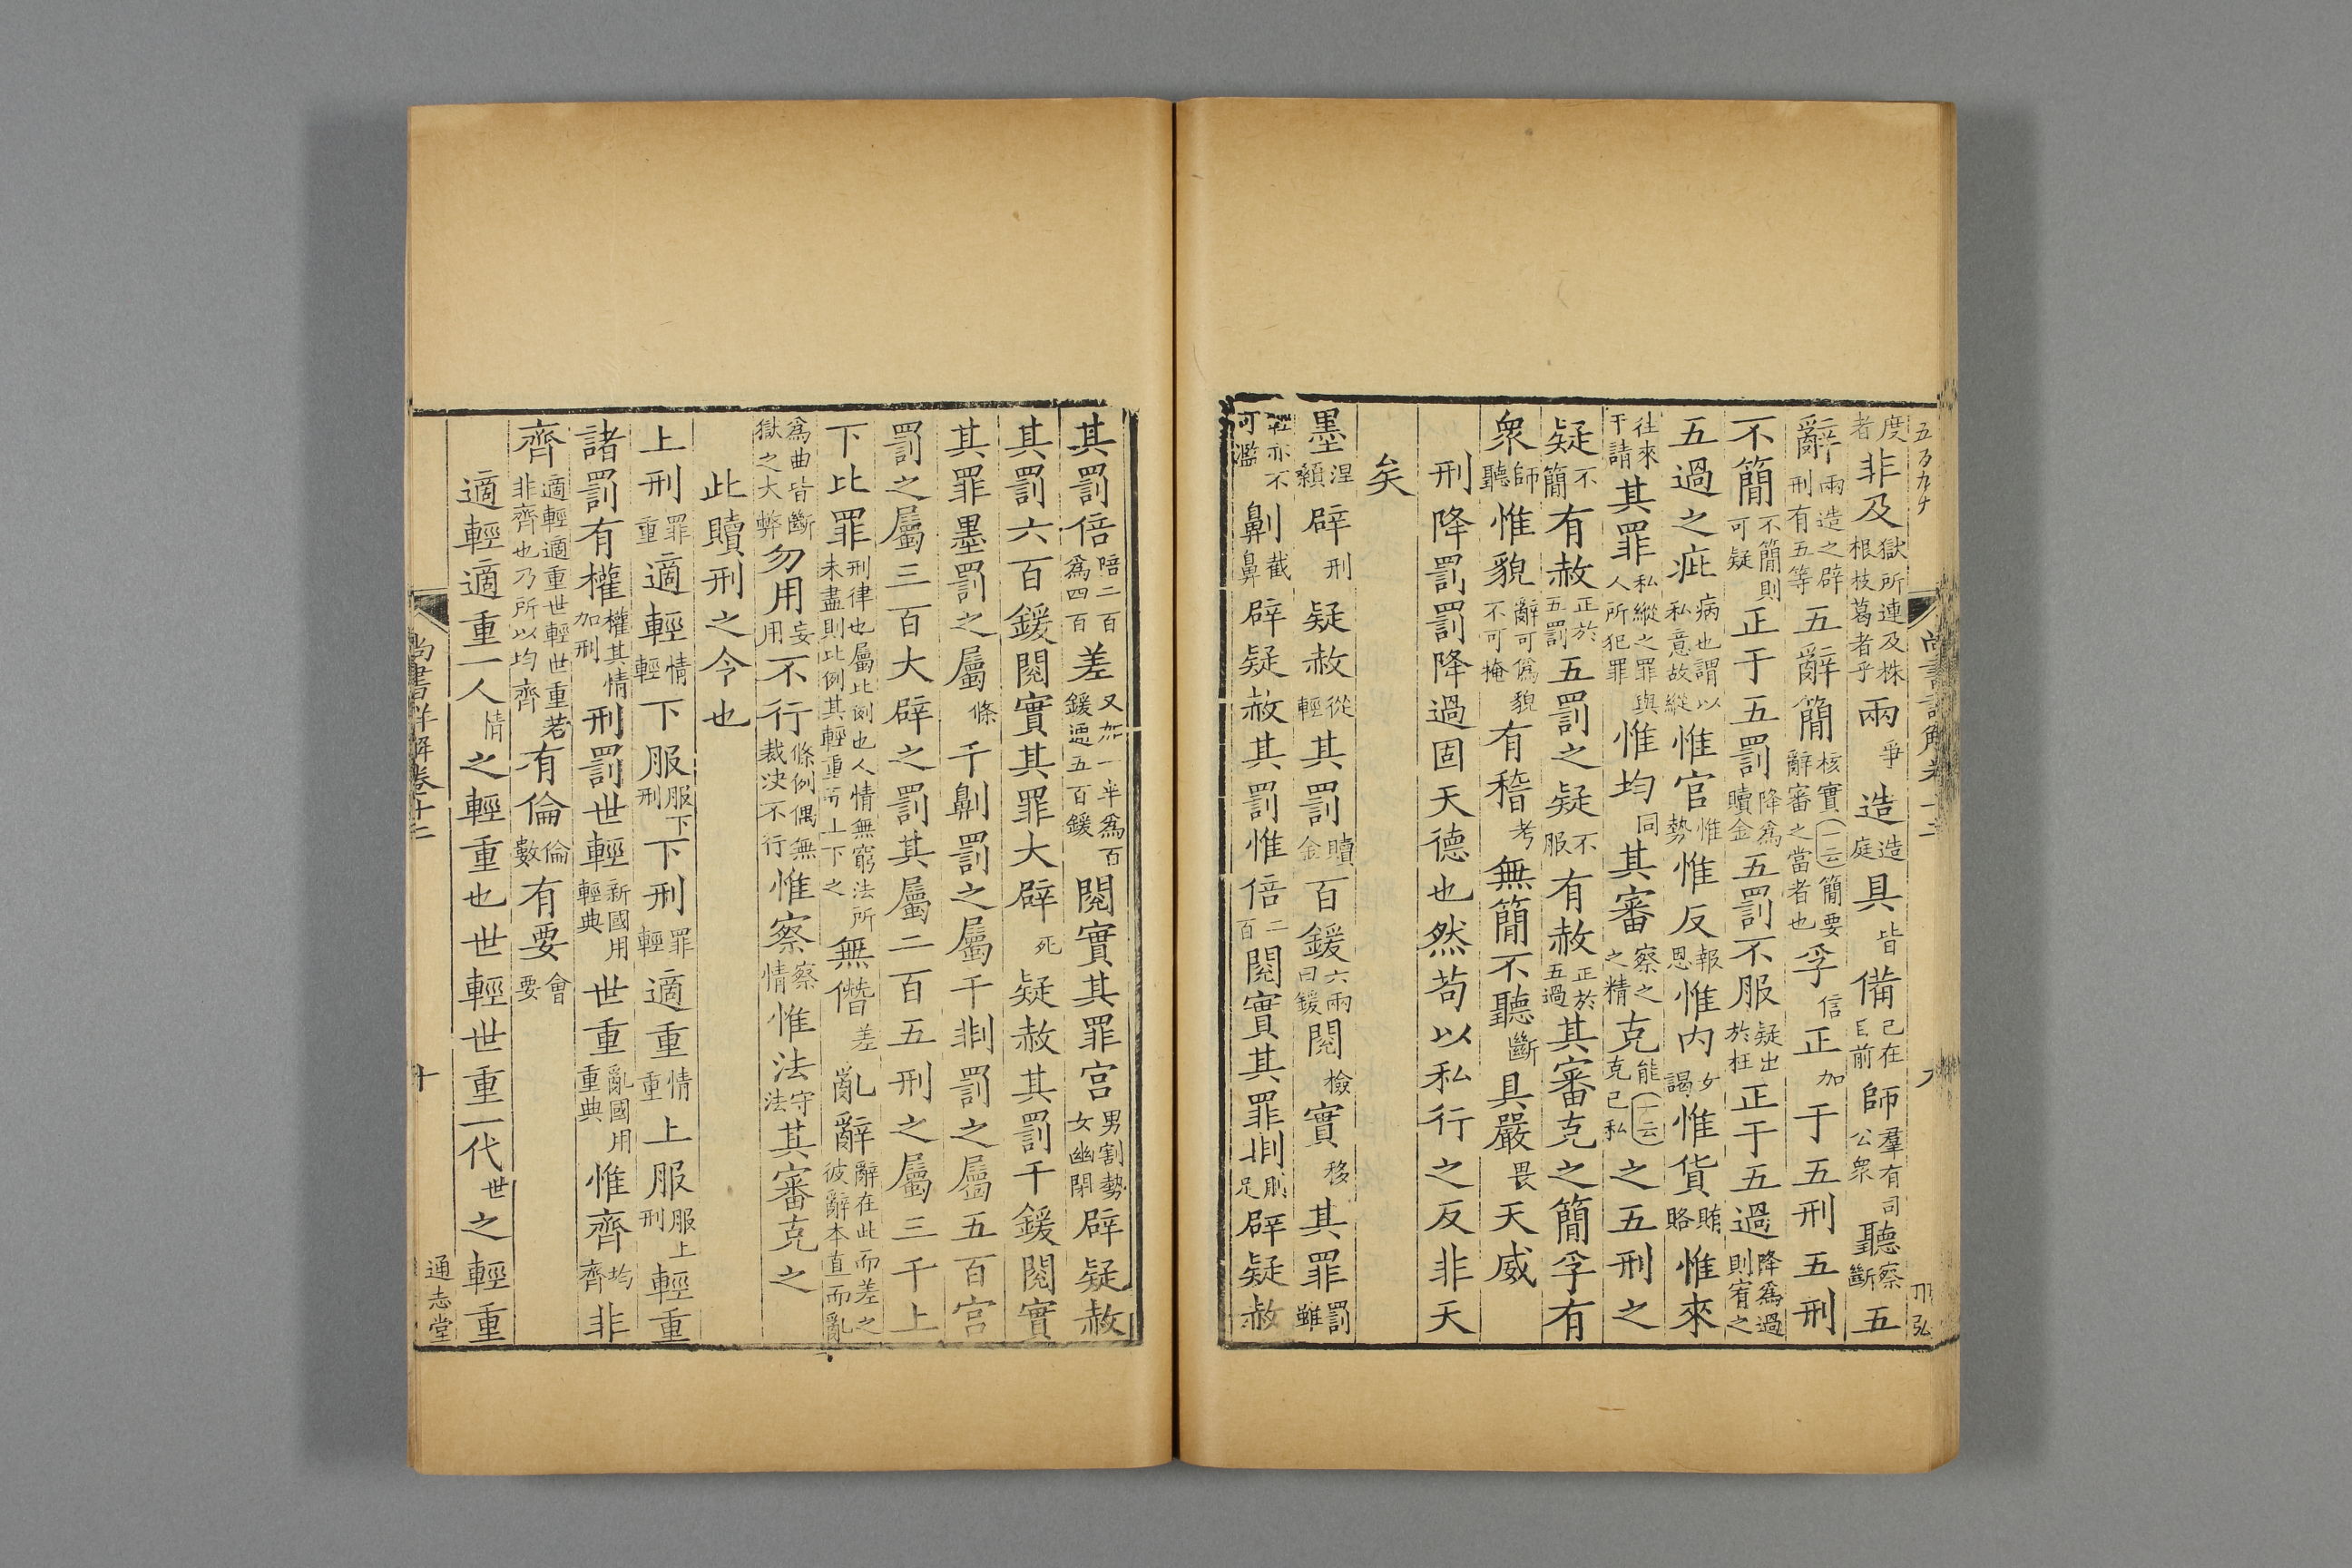 度者非及獄所連及株根枝葛者乎兩爭造造庭具皆備已在前師羣有司公衆聽察斷五
辭兩造之辟刑有五等五辭簡核實一云簡要辭審之當者也孚信正加于五刑五刑
不簡不簡則可疑正于五罰降爲贖金五罰不服疑出於枉正于五過降爲過則宥之
五過之疵病也謂以私意故縱惟官惟勢惟反報恩惟内女謁惟貨賄賂惟來
往來干請其罪私縱之罪與人所犯罪惟均同其審察之之精克能一云克已私之五刑之
疑不簡有赦正於五罰五罰之疑不服有赦正於五過其審克之簡孚有
衆師聽惟貌辭可爲貌不可掩有稽考無簡不聽斷具嚴畏天威
刑降罰罰降過固天德也然苟以私行之反非天
矣
墨涅顙辟刑疑赦從輕其罰贖金百鍰六兩曰鍰閱檢實移其罪罰雖
輕亦不可濫劓截鼻辟疑赦其罰惟倍二百閱實其罪剕刖足辟疑赦
其罰倍陪二百爲四百差又加一半爲百鍰遞五百鍰閱實其罪宫男割勢女幽閉辟疑赦
其罰六百鍰閱實其罪大辟死疑赦其罰千鍰閱實
其罪墨罰之屬條千劓罰之屬千剕罰之屬五百宫
罰之屬三百大辟之罰其屬二百五刑之屬三千上
下比罪刑律也屬比例也人情無窮法所未盡則比例其輕重而上下之無僭差亂辭辭在此而差之彼辭本直而亂
爲曲皆斷獄之大弊勿用妄用不行條例偶無裁决不行惟察察情惟法守法其審克之
此贖刑之令也
上刑罪重適輕情輕下服服下刑下刑罪輕適重情重上服服上刑輕重
諸罰有權權其情加刑刑罰世輕新國用輕典世重亂國用重典惟齊均齊非
齊適輕適重世輕世重若非齊也乃所以均齊有倫倫數有要會要
適輕適重一人情之輕重也世輕世重一代世之輕重
尚書詳解卷十二
十
通志堂